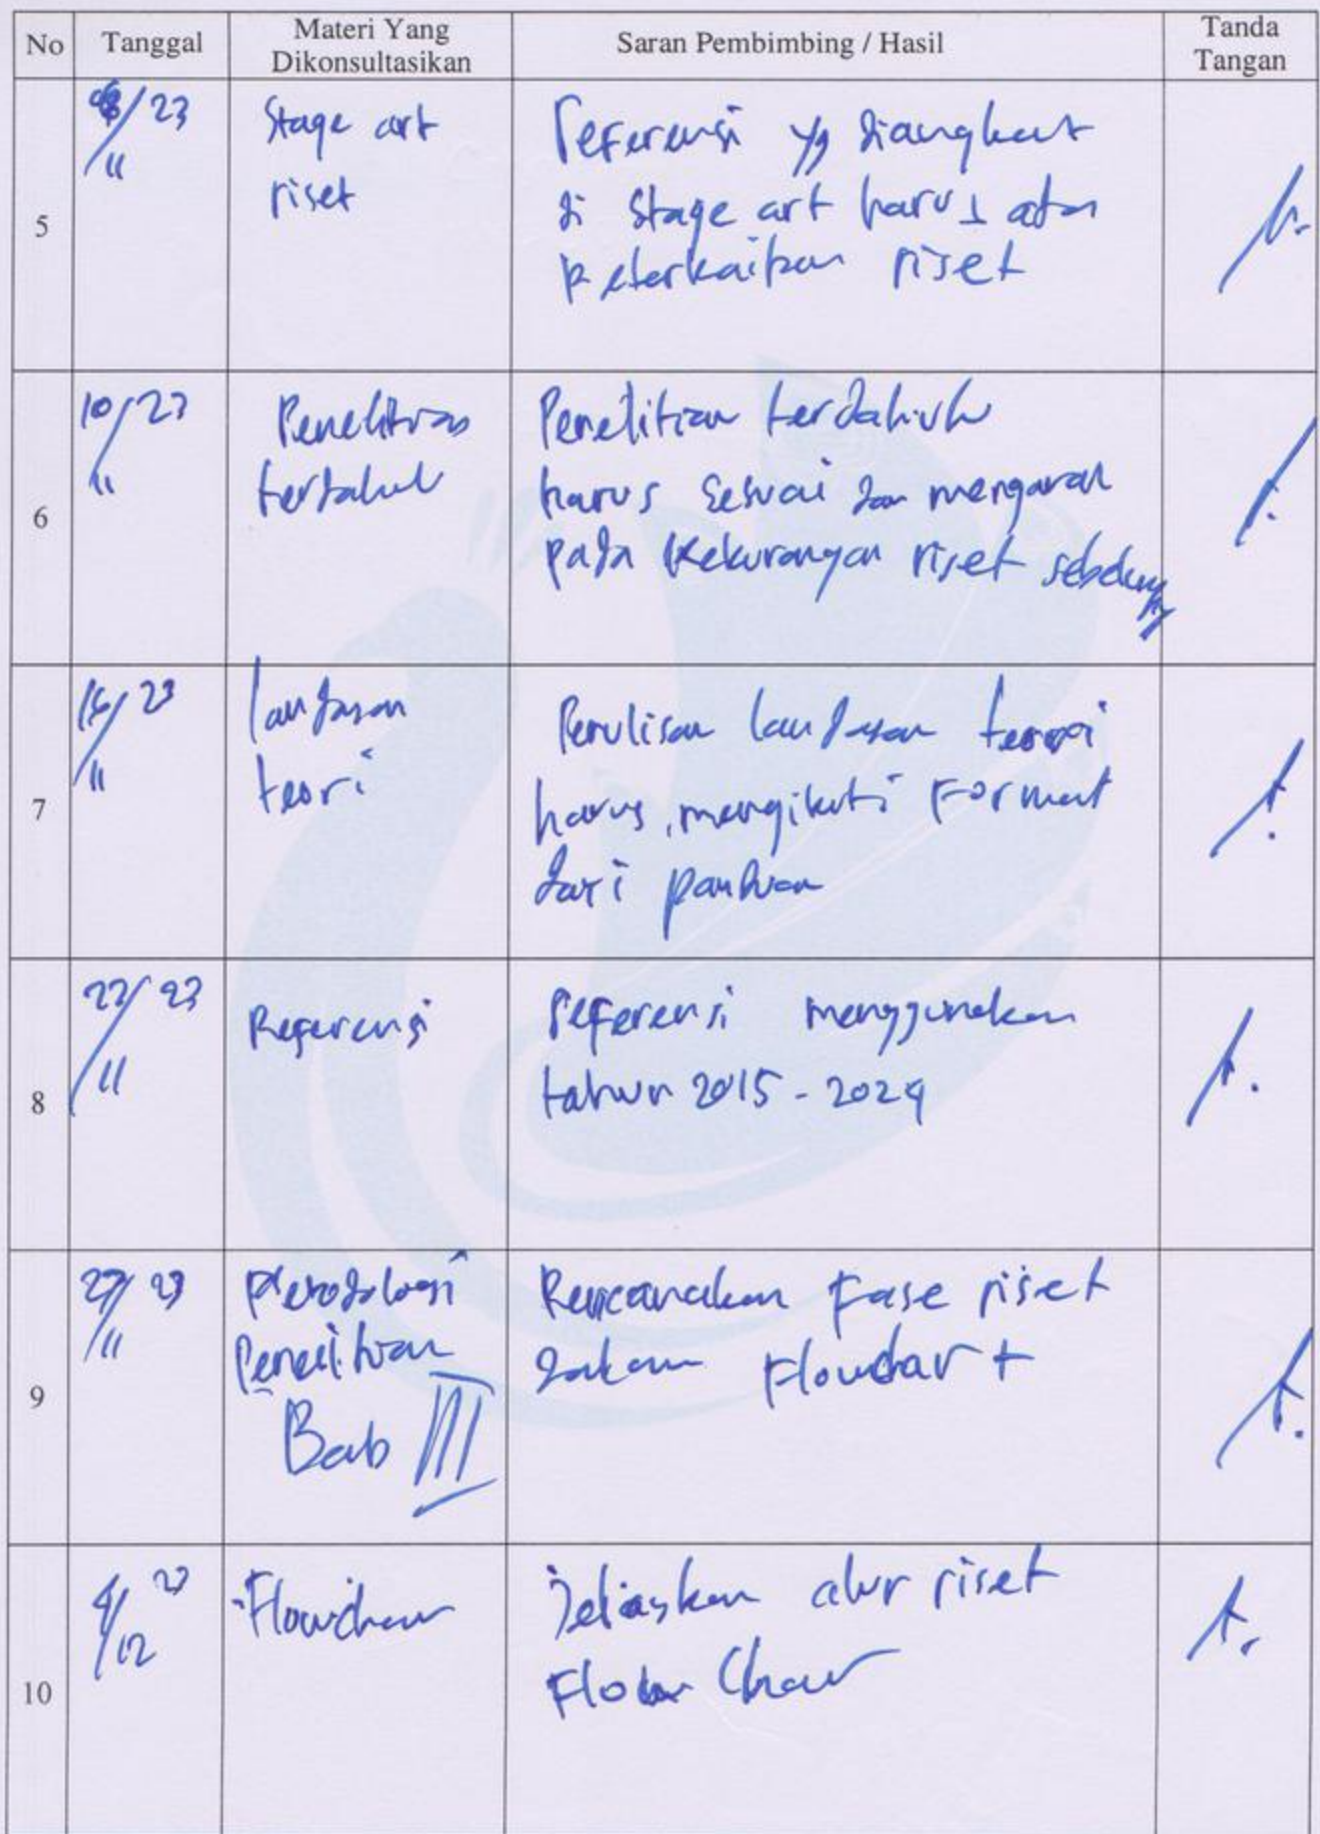 No Tanggal Materi Yang Dikonsultasikan Saran Pembimbing / Hasil Tanda Tangan
5
/23
11
Stage art
riset
Referensi yg diangkat
di Stage art harus ada
keterkaitan riset
6
10/23
11
Penelitian
terdahul
Penelitian terdahulu
harus sesuai dan mengarah
pada kekurangan riset sebelumnya
7
/23
11
landasan
teori
Penulisan landasan teori
harus mengikuti Format
dari panduan
8
22/23
11
Referensi
Referensi menggunakan
tahun 2015 - 2024
9
27/23
11
Metodologi
Penelitian
Bab III
Rencanakan Fase riset
dalam Flowchart
10
4/23
12
Flowchar
Jelaskan alur riset
Flow Char